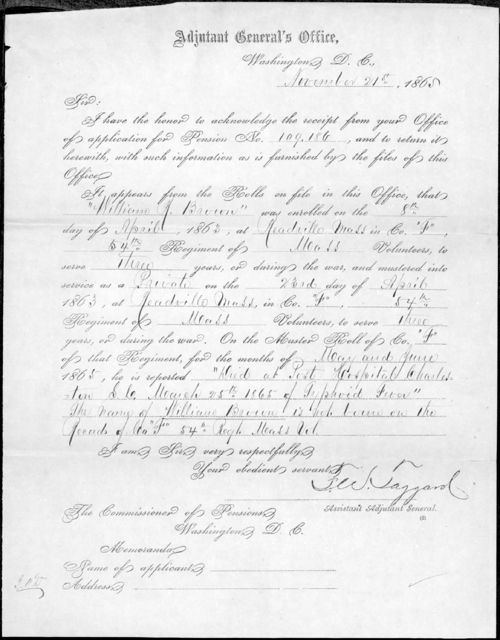 Adjutant General's Office,
Washington, D. C.,
November 21st, 1865
Sir:
I have the honor to acknowledge the receipt from your Office
of application for Pension No. 109.186, and to return it
herewith, with such information as is furnished by the files of this
Office.
It appears from the Rolls on file in this Office, that
"William J. Brown" was enrolled on the 8th
day of April, 1863, at Readville Mass in Co. "F",
54th Regiment of Mass Volunteers, to
serve three years, or during the war, and mustered into
service as a Private on the 23rd day of April
1863, at Readville Mass, in Co. "F", 54th
Regiment of Mass Volunteers, to serve three
years, or during the war. On the Muster Roll of Co. "F"
of that Regiment, for the months of May and June
1865, he is reported "Died at Post Hospital Charles-
ton S.C. March 25th 1865 of Typhoid Fever"
The name of William Brown is not borne on the
Records of Co "F" 54th Regt Mass Vol
I am, Sir, very respectfully,
Your obedient servant,
Taggard
Assistant Adjutant General.
The Commissioner of Pensions,
Washington, D. C.
Memoranda
Name of applicant,
Address,